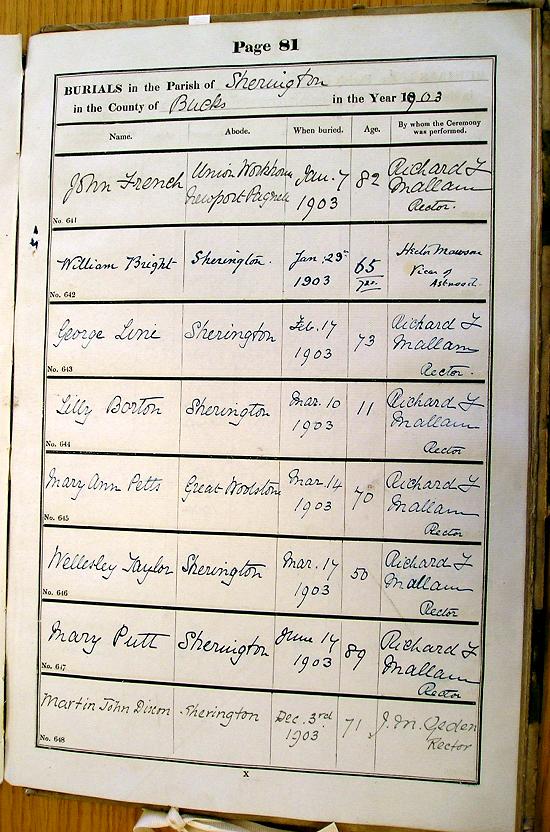 Page 81
BURIALS in the Parish of Sherington
in the County of Bucks in the Year 1903
Name. Abode. When buried. Age. By whom the Ceremony was performed.
John French Union Workhouse Newport Pagnell Jan. 7 1903 82 Richard F Mallam Rector.
No. 641
William Bright Sherington. Jan. 29th 1903 65 yrs. Mawson Vicar of Astwood.
No. 642
George Line Sherington Feb. 17 1903 73 Richard F Mallam Rector.
No. 643
Lilly Borton Sherington Mar. 10 1903 11 Richard F Mallam Rector
No. 644
Mary Ann Petts Great Woodstone Mar. 14 1903 70 Richard F Mallam Rector
No. 645
Wellesley Taylor Sherington Mar. 17 1903 50 Richard F Mallam Rector
No. 646
Mary Putt Sherington June 17 1903 89 Richard F Mallam Rector
No. 647
Martin John Dixon Sherington Dec. 3rd 1903 71 J. M. Ogden Rector
No. 648
X